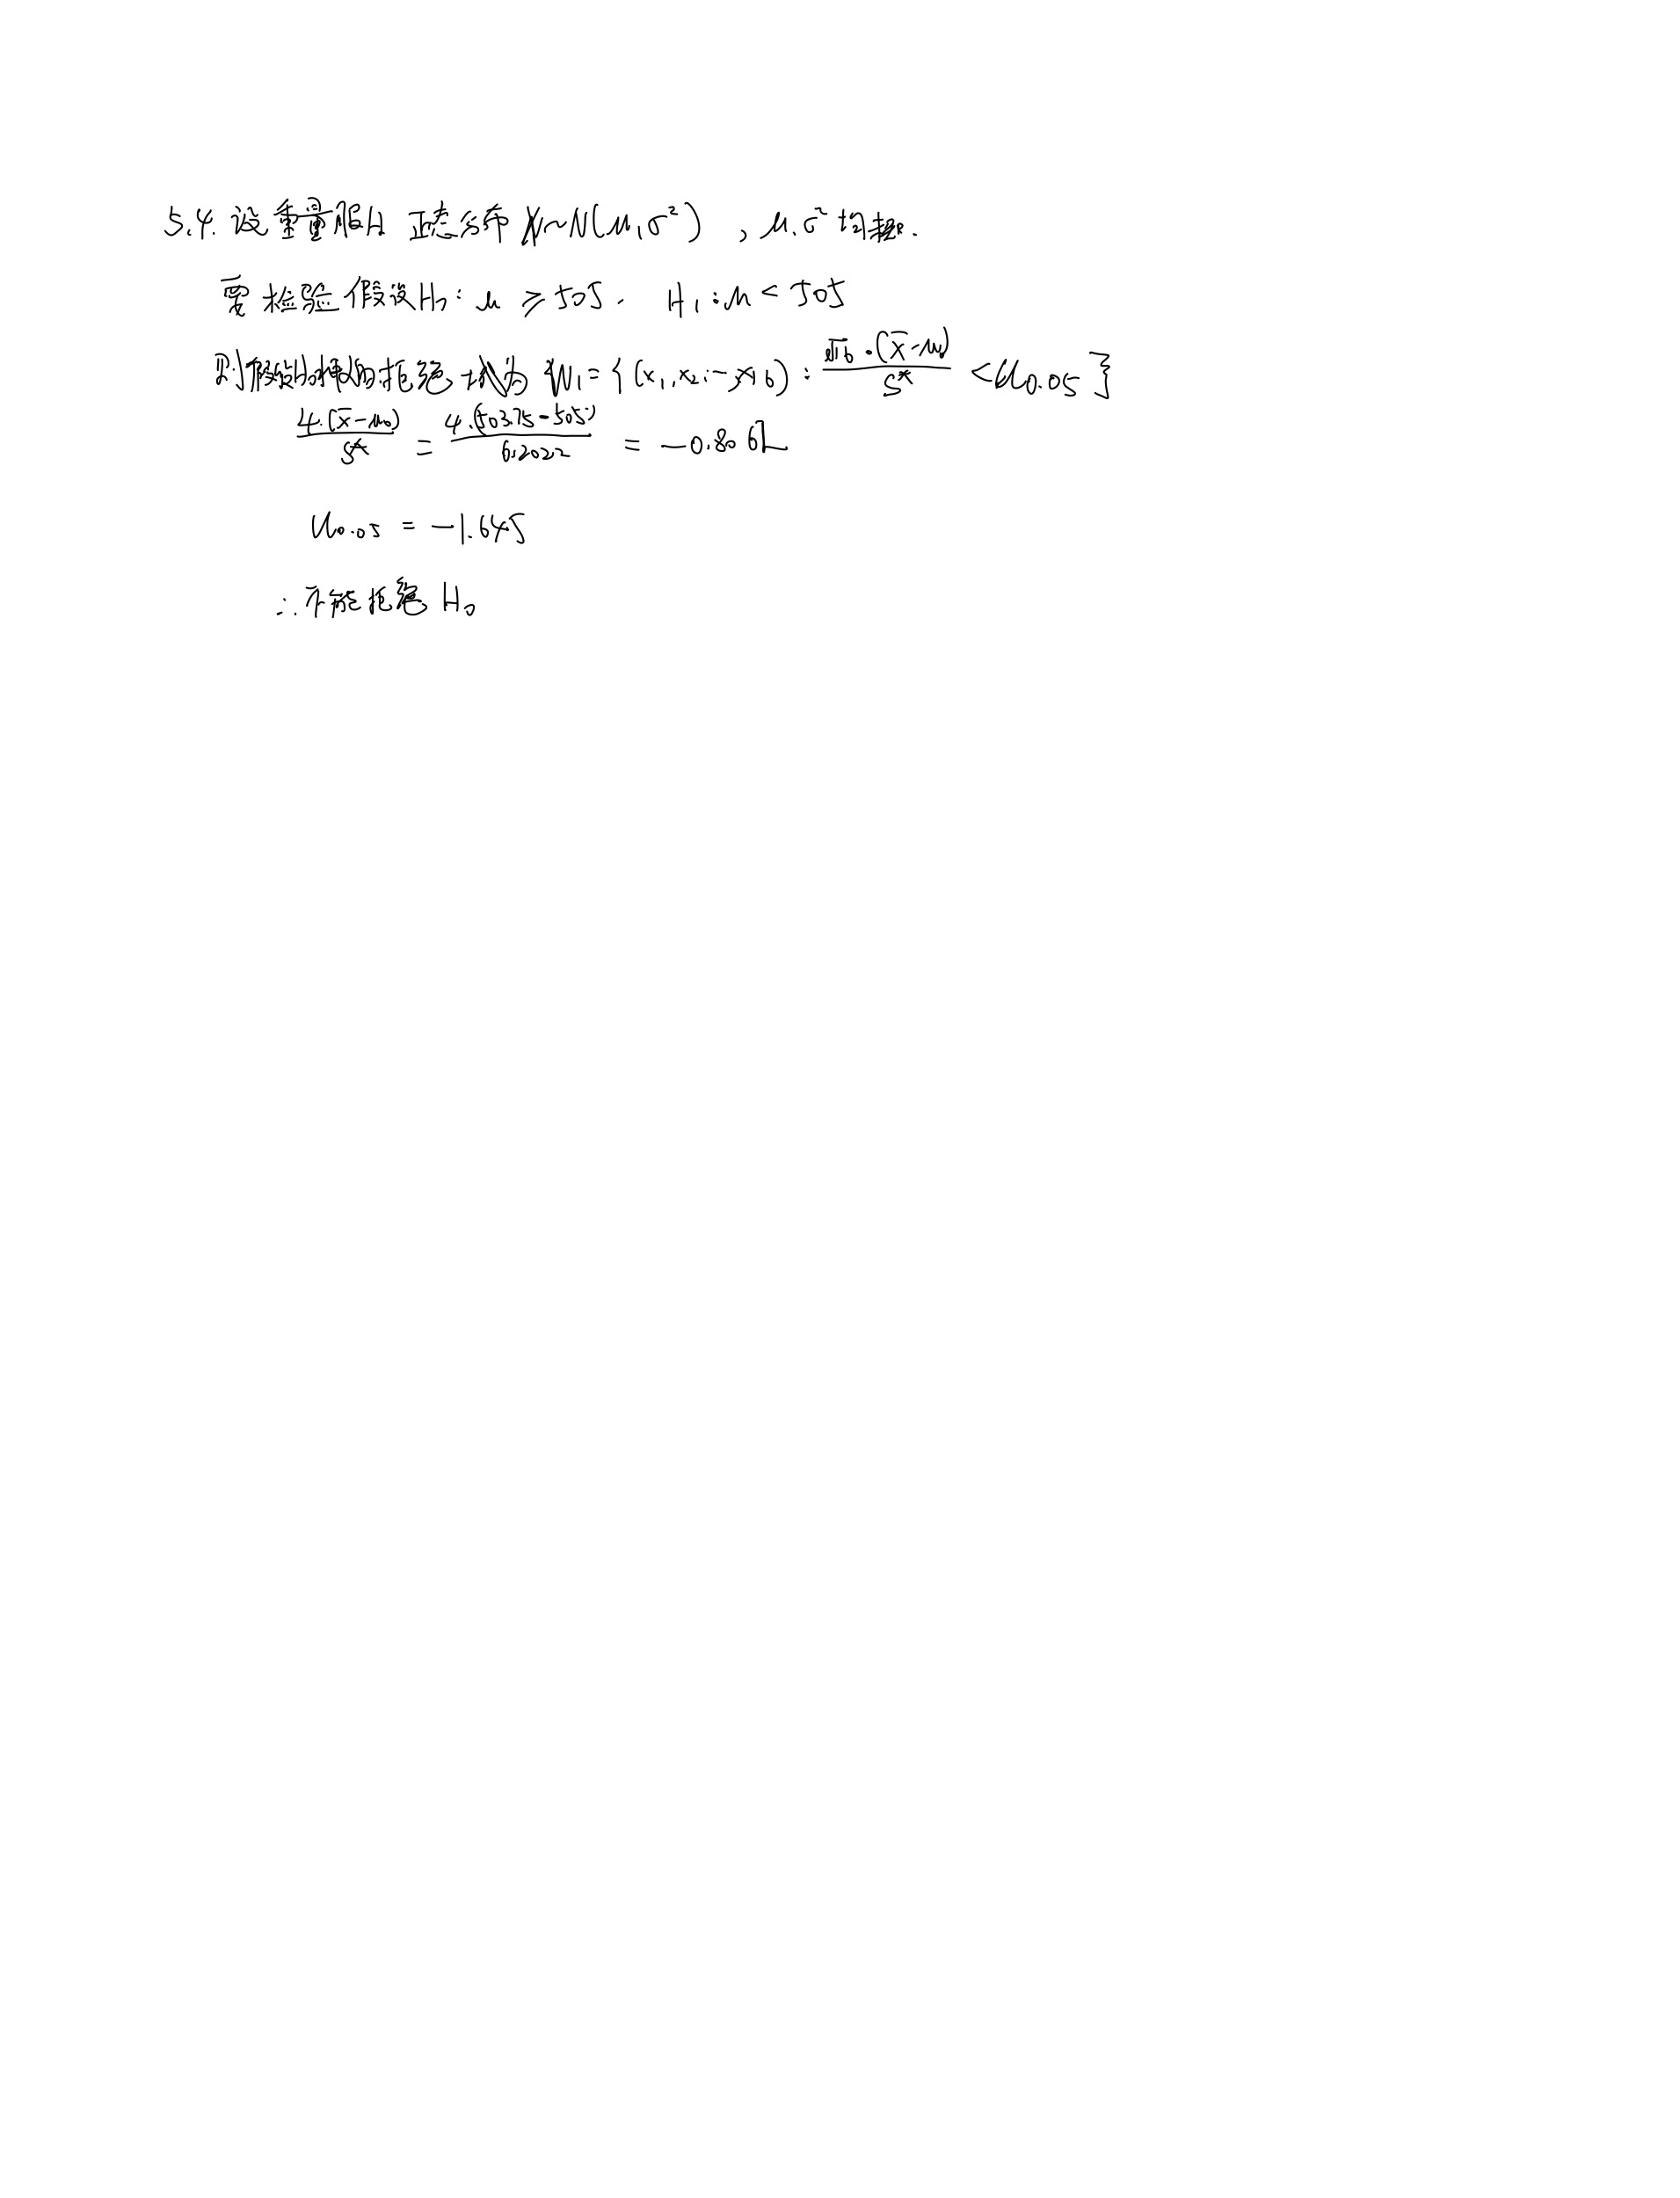 5.4. 设重量服从 正态分布 X~N(μ,σ²) , μ.σ² 均未知.
要检验假设H₀: μ ≥ 505. H₁: μ < 505
则假设H₀ 的拒绝域为 W₁ = {(x₁,x₂,…,x₁₆) : √16·(x̄-μ₀)/S* < u₀.₀₅}
4·(x̄-μ₀)/S* = 4·(503.75-505)/6.2022 = -0.8062
u₀.₀₅ = -1.645
∴不能拒绝 H₀